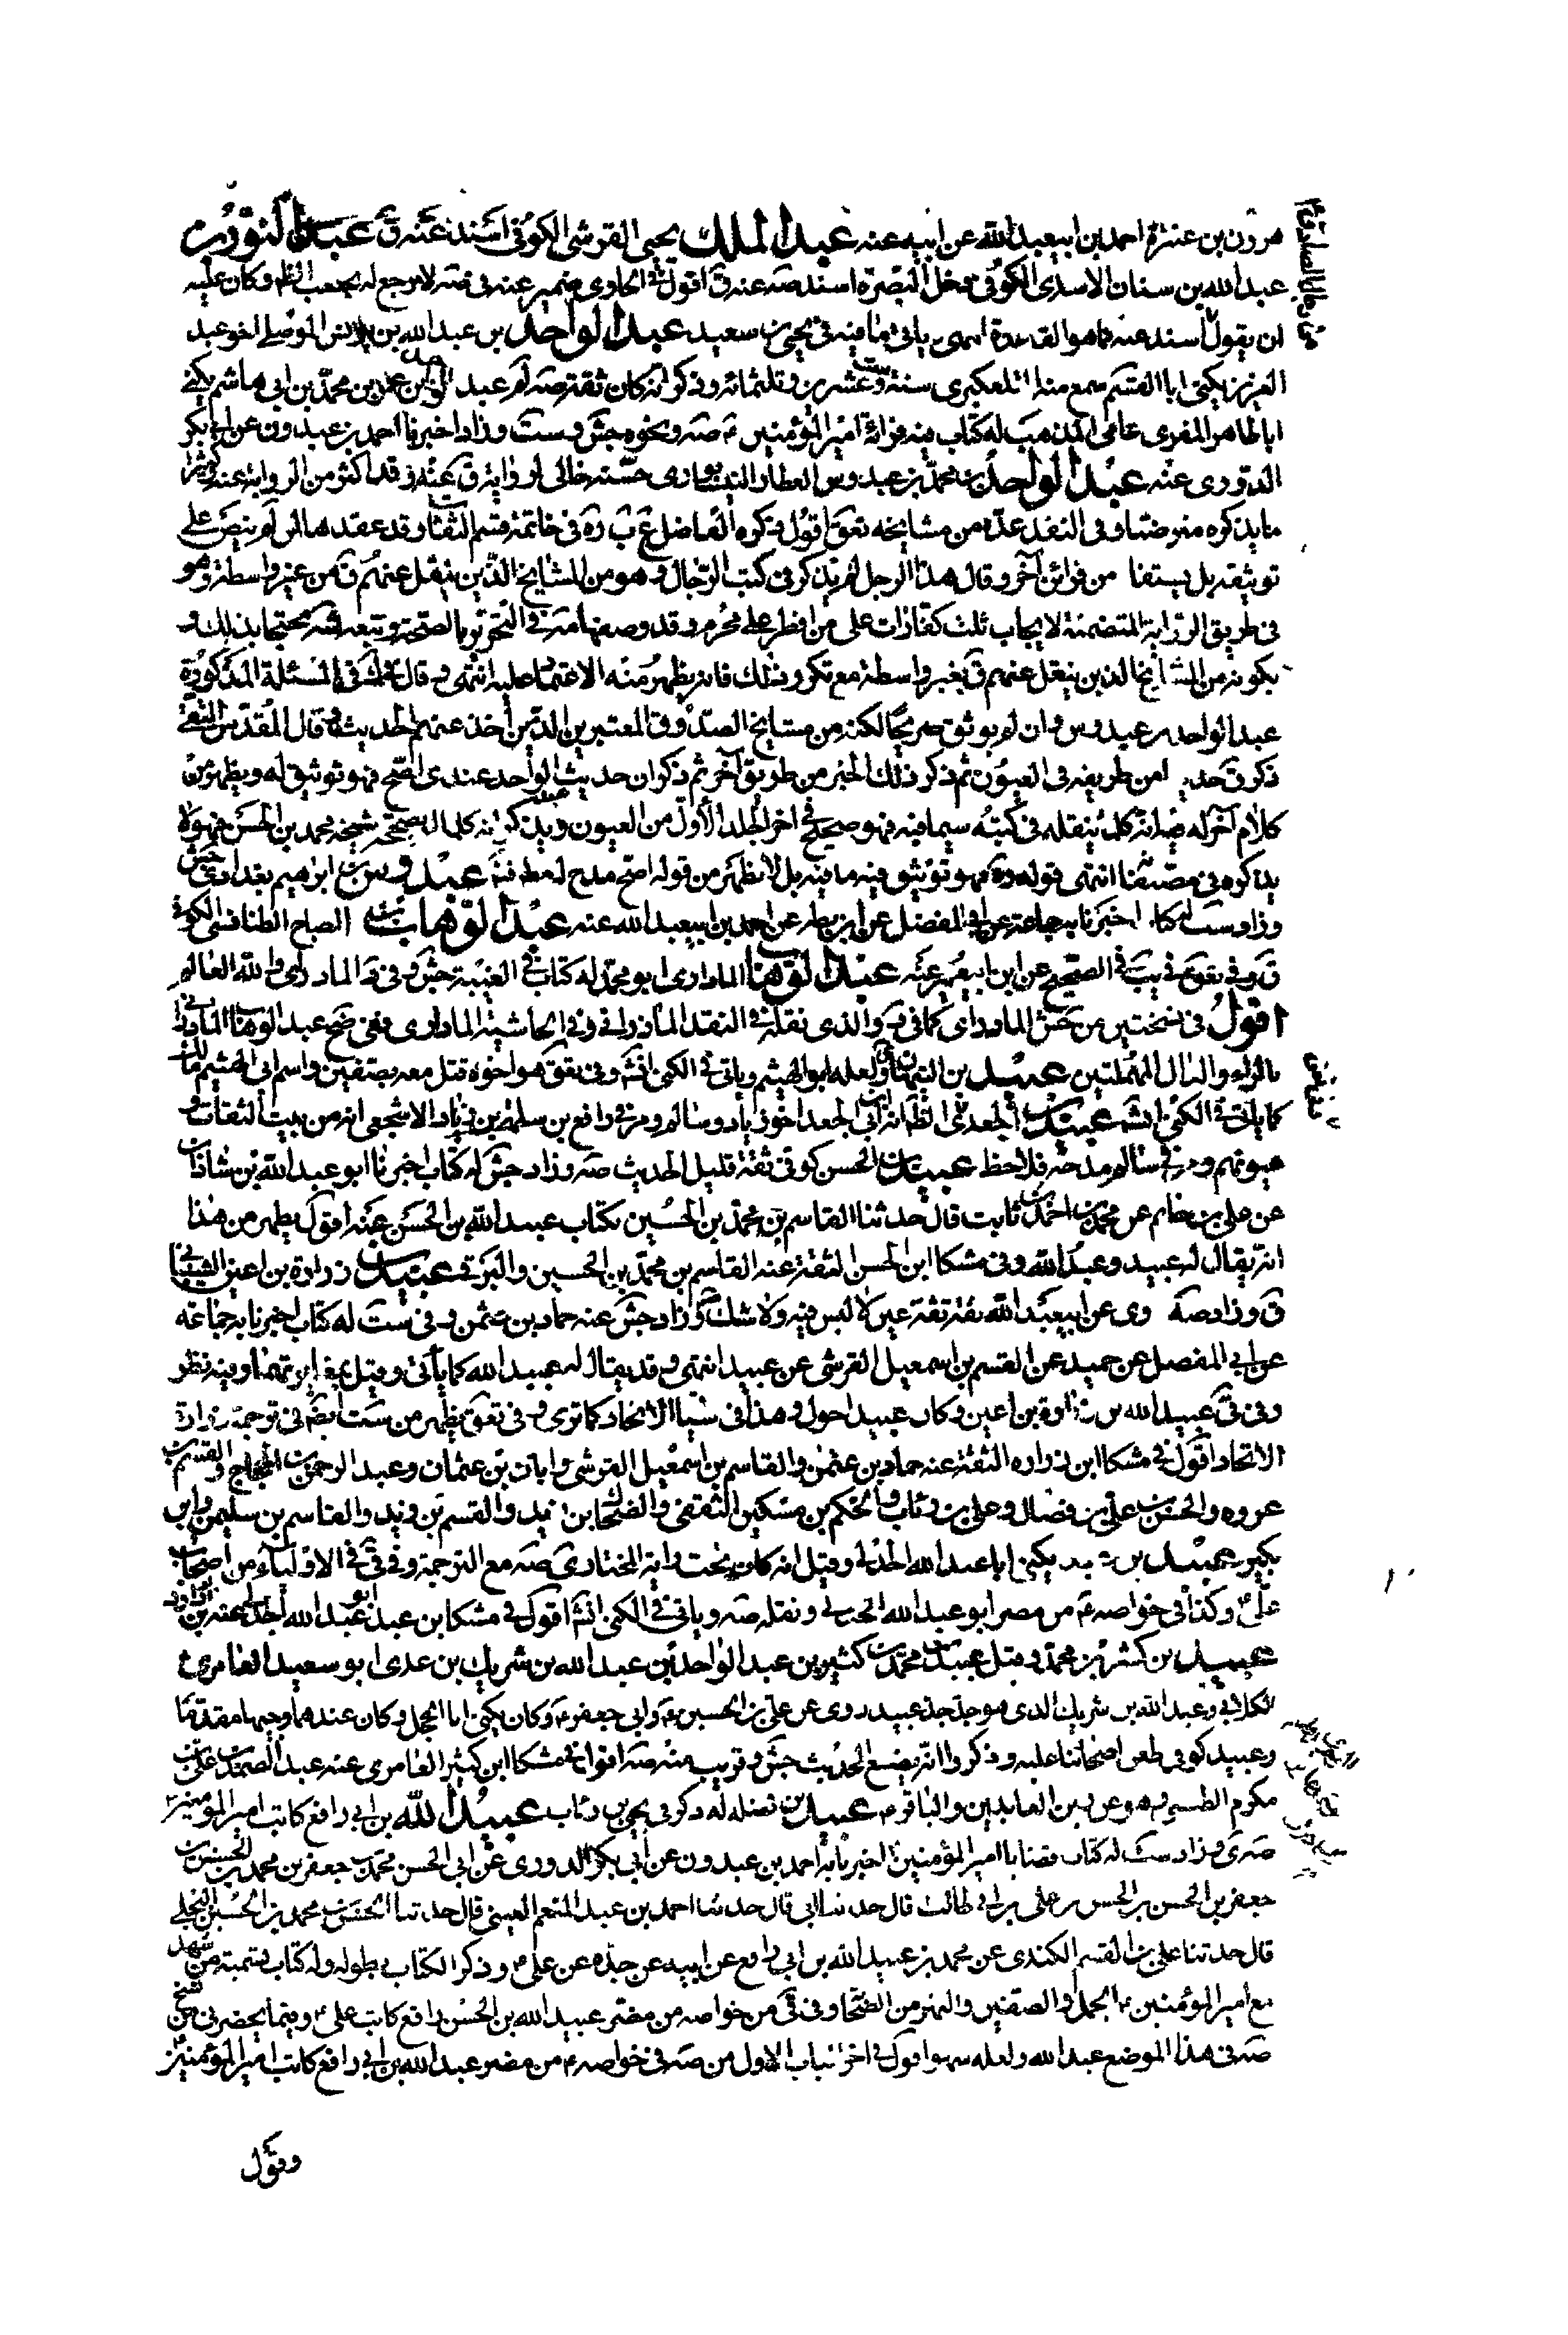 هرون بن عنترة احمد بن ابيعبد الله عن ابيه عنه عبد الملك يحيى القرشي الكوفي اسند عنه ق عبد النور بن
عبد الله بن سنان الاسدي الكوفي دخل البصرة اسند صه عنه ق اقول في الحاوي ضمير عنه في صه لا مرجع له بحسب الظم وكان عليه
ان يقول اسند عنه كما هو القاعدة انتهى ياتي ما فيه في يحيى بن سعيد عبد الواحد بن عبد الله بن يونس الموصلي اخو عبد
العزيز يكنى ابا القسم سمع منه التلعكبري سنة ست وعشرين وثلثمائة وذكر انه كان ثقة صه لم عبد الواحد بن عمر بن محمد بن ابي هاشم يكنى
ابا طاهر المقري عامي المذهب له كتاب فيه قراءة امير المؤمنين ع صه ونحوه جش وست وزاد اخبرنا احمد بن عبدون عن ابي بكر
الدوري عنه عبد الواحد بن محمد بن عبدوس العطار النيسابوري حسنه خالي لرواية ق عنه وقد اكثر من الرواية عنه وكثيرا
ما يذكره مترضيا وفي النقد عده من مشايخه تعق اقول ذكره الفاضل ع ب ره في خاتمة قسم الثقات وقد عقدها لمن لم ينص على
توثيقه بل يستفاد من قرائن اخر وقال هذا الرجل لم يذكر في كتب الرجال وهو من المشايخ الذين ينقل عنهم ق من غير واسطة وهو
في طريق الرواية المتضمنة لايجاب ثلث كفارات على من افطر على محرم وقد وصفها مة في التحرير بالصحة وتبعه شه محتجا بذلك و
بكونه من المشايخ الذين ينقل عنهم ق بغير واسطة مع تكرر ذلك فانه يظهر منه الاعتماد عليه انتهى وقال في لك في المسئلة المذكورة
عبد الواحد بن عبدوس وان لم يوثق صريحا لكنه من مشايخ الصدوق المعتبرين الذين اخذ عنهم الحديث وقال المقدس التقي
ذكر ق حديثا من طريقه في العيون ثم ذكر ذلك الخبر من طريق آخر ثم ذكر ان حديث عبد الواحد عندي اصح فهو توثيق له ويظهر من
كلام آخر له ايضا انه كلما ينقله في كتبه سيما فيه فهو صحيح في اخر الجلد الاول من العيون ويذكر انه كلما لم يصححه شيخه محمد بن الحسن فهو لا
يذكره في مصنفه انتهى قوله ره فهو توثيق فيه ما فيه بل لا نظهر من قوله اصح مدح له فضلا عبدوس بن ابراهيم بغدادي جش
وزاد ست له كتاب اخبرنا به جماعة عن ابي المفضل عن ابن بطة عن احمد بن ابيعبد الله عنه عبد الوهاب بن الصباح الطنافسي الكوفي
ق وفي تعق في يب في الصحيح عن ابن ابيعمير عنه عبد الوهاب المادرائي ابو محمد له كتاب في الغيبة جش وفي د المادرائي والله العالم
اقول في نسختين من جش المادرائي كما في د والذي نقله في النقد الماذراني وفي الحاشية المادراي وفي ضح عبد الوهاب المادرائي
بالراء والدال المهملتين عبيد بن التيهان ولعله ابو الهيثم وياتي في الكنى انش وفي تعق هو اخوه قتل معه بصفين واسم ابي الهيثم مالك
كما ياتي في الكنى انش عبيد بن الجعد الظ انه ابن ابي الجعد اخو زياد وسالم ومر في رافع بن سلمة بن زياد الاشجعي انه من بيت الثقات و
عيونهم ومر في سالم مدحه فلاحظ عبيد بن الحسن كوفي ثقة قليل الحديث صه وزاد جش له كتاب اخبرنا ابو عبد الله بن شاذان
عن علي بن حاتم عن محمد بن احمد بن ثابت قال حدثنا القاسم بن محمد بن الحسين بكتاب عبيد الله بن الحسن عنه اقول يظهر من هذا
انه يقال له عبيد وعبيد الله وفي مشكا ابن الحسن الثقة عنه القاسم بن محمد بن الحسين والبرقي عبيد بن زرارة بن اعين الشيباني
ق وزاد صه روى عن ابيعبد الله ثقة ثقة عين لا لبس فيه ولا شك وزاد جش عنه حماد بن عثمن وفي ست له كتاب اخبرنا به جماعة
عن ابي المفضل عن حميد عن القسم بن اسمعيل القرشي عن عبيد انتهى وقد يقال له عبيد الله كما ياتي وقيل بتغايرهما وفيه نظر
وفي ق عبيد الله بن زرارة بن اعين وكان عبيد احول وهذا في سياق الاتحاد كما ترى وفي تعق يظهر من ست ايض في ترجمة زرارة
الاتحاد اقول في مشكا ابن زراره الثقة عنه حماد بن عثمن والقاسم بن اسمعيل القرشي وابان بن عثمان وعبد الرحمن بن الحجاج والقسم بن
عروه والحسن بن علي بن فضال وعلي بن رئاب والحكم بن مسكين الثقفي والضحاك بن زيد والقسم بن زيد والقاسم بن سليمن وابن
بكير عبيد بن عبد يكنى ابا عبد الله الجدلي وقيل انه كان تحت راية المختار ى صه مع الترجمة وفي ق في الاولياء من اصحاب
علي ع وكذا في خواصه ع من مضر ابو عبد الله الجدلي ونقله صه وياتي في الكنى انش اقول في مشكا ابن عبد ابو عبد الله الجدلي عنه ابو داود
عبيد بن كثير بن محمد وقيل عبيد بن محمد بن كثير بن عبد الواحد بن عبد الله بن شريك بن عدي ابو سعيد العامري
الكلابي وعبد الله بن شريك الذي هو جد جد عبيد روى عن علي بن الحسين ع وابي جعفر ع وكان يكنى ابا المحجل وكان عندهما وجيها مقدما
وعبيد كوفي طعن اصحابنا عليه وذكروا انه يضع الحديث جش وقريب منه صه اقول في مشكا ابن كثير العامري عنه عبد الصمد بن علي بن
مكرم الطستي وهو عن زين العابدين والباقر ع عبيد بن نضله له ذكر في يحيى بن وثاب عبيد الله بن ابي رافع كاتب امير المؤمنين ع
صه ى وزاد ست له كتاب قضايا امير المؤمنين اخبرنا به احمد بن عبدون عن ابي بكر الدوري عن ابي الحسن محمد بن جعفر بن محمد بن الحسن بن
جعفر بن الحسن بن الحسن بن علي بن ابي طالب قال حدثنا ابي قال حدثنا احمد بن عبد المنعم العيني قال حدثنا الحسن بن محمد بن الحسين البجلي
قال حدثنا علي بن القسم الكندي عن محمد بن عبيد الله بن ابي رافع عن ابيه عن جده عن علي ع وذكر الكتاب بطوله وله كتاب تسمية من شهد
مع امير المؤمنين ع الجمل والصفين والنهر من الصحابة وفي ق من خواصه من مضر عبيد الله بن الحسن رافع كاتب علي ع وفيما يحضرني من نسخ
صه في هذا الموضع عبد الله ولعله سهو اقول في اخر الباب الاول من صه في خواصه ع من مضر عبد الله بن ابي رافع كاتب امير المؤمنين ع
وقول